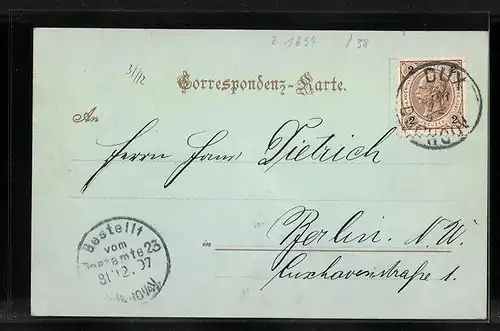 z 1694 / 38
3/12
Correspondenz-Karte.
An
DUX
2 2
Herrn Hans Dietrich
Bestellt
vom
Postamte 23
31 12. 97
in Berlin. N. W.
Cuxhavenstraße 1.